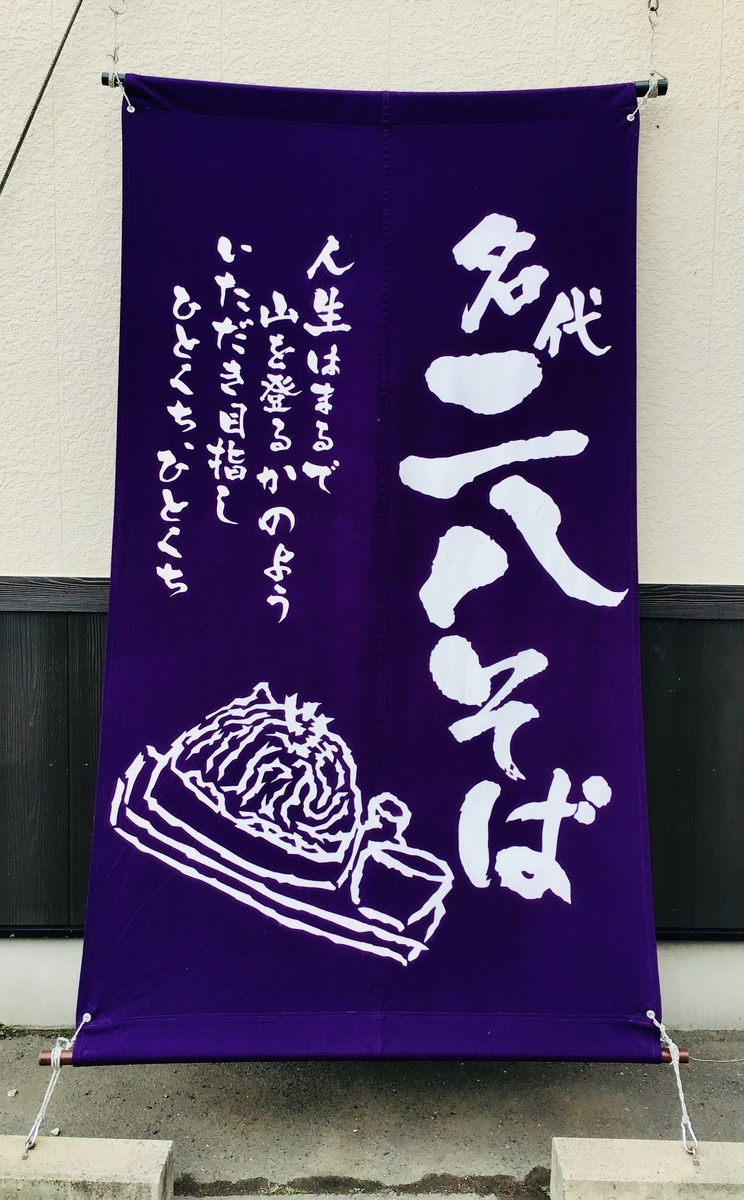 名代二八そば
人生はまるで
山を登るかのよう
いただき目指し
ひとくち、ひとくち